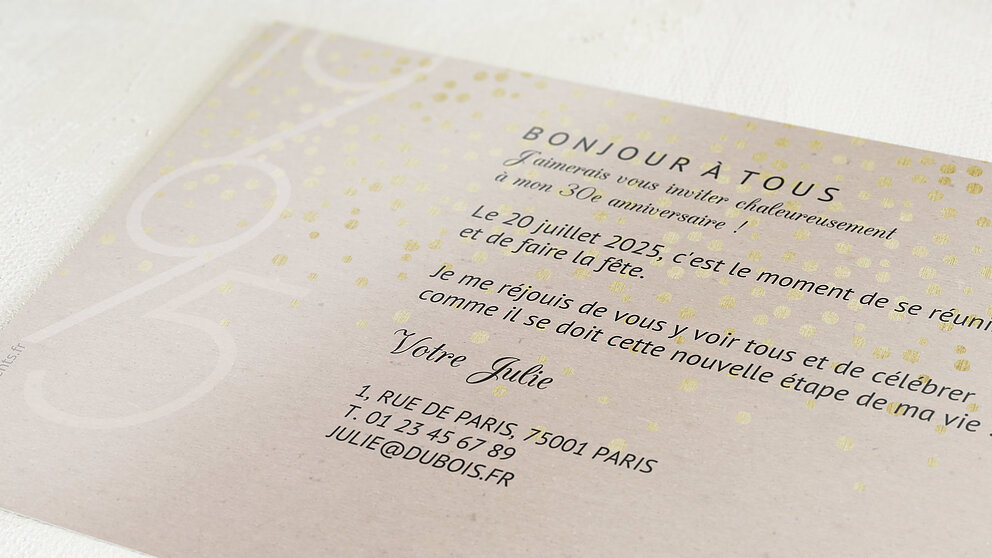 1995
BONJOUR À TOUS
J'aimerais vous inviter chaleureusement
à mon 30e anniversaire !
Le 20 juillet 2025, c'est le moment de se réuni
et de faire la fête.
Je me réjouis de vous y voir tous et de célébrer
comme il se doit cette nouvelle étape de ma vie
Votre Julie
1, RUE DE PARIS, 75001 PARIS
T. 01 23 45 67 89
JULIE@DUBOIS.FR